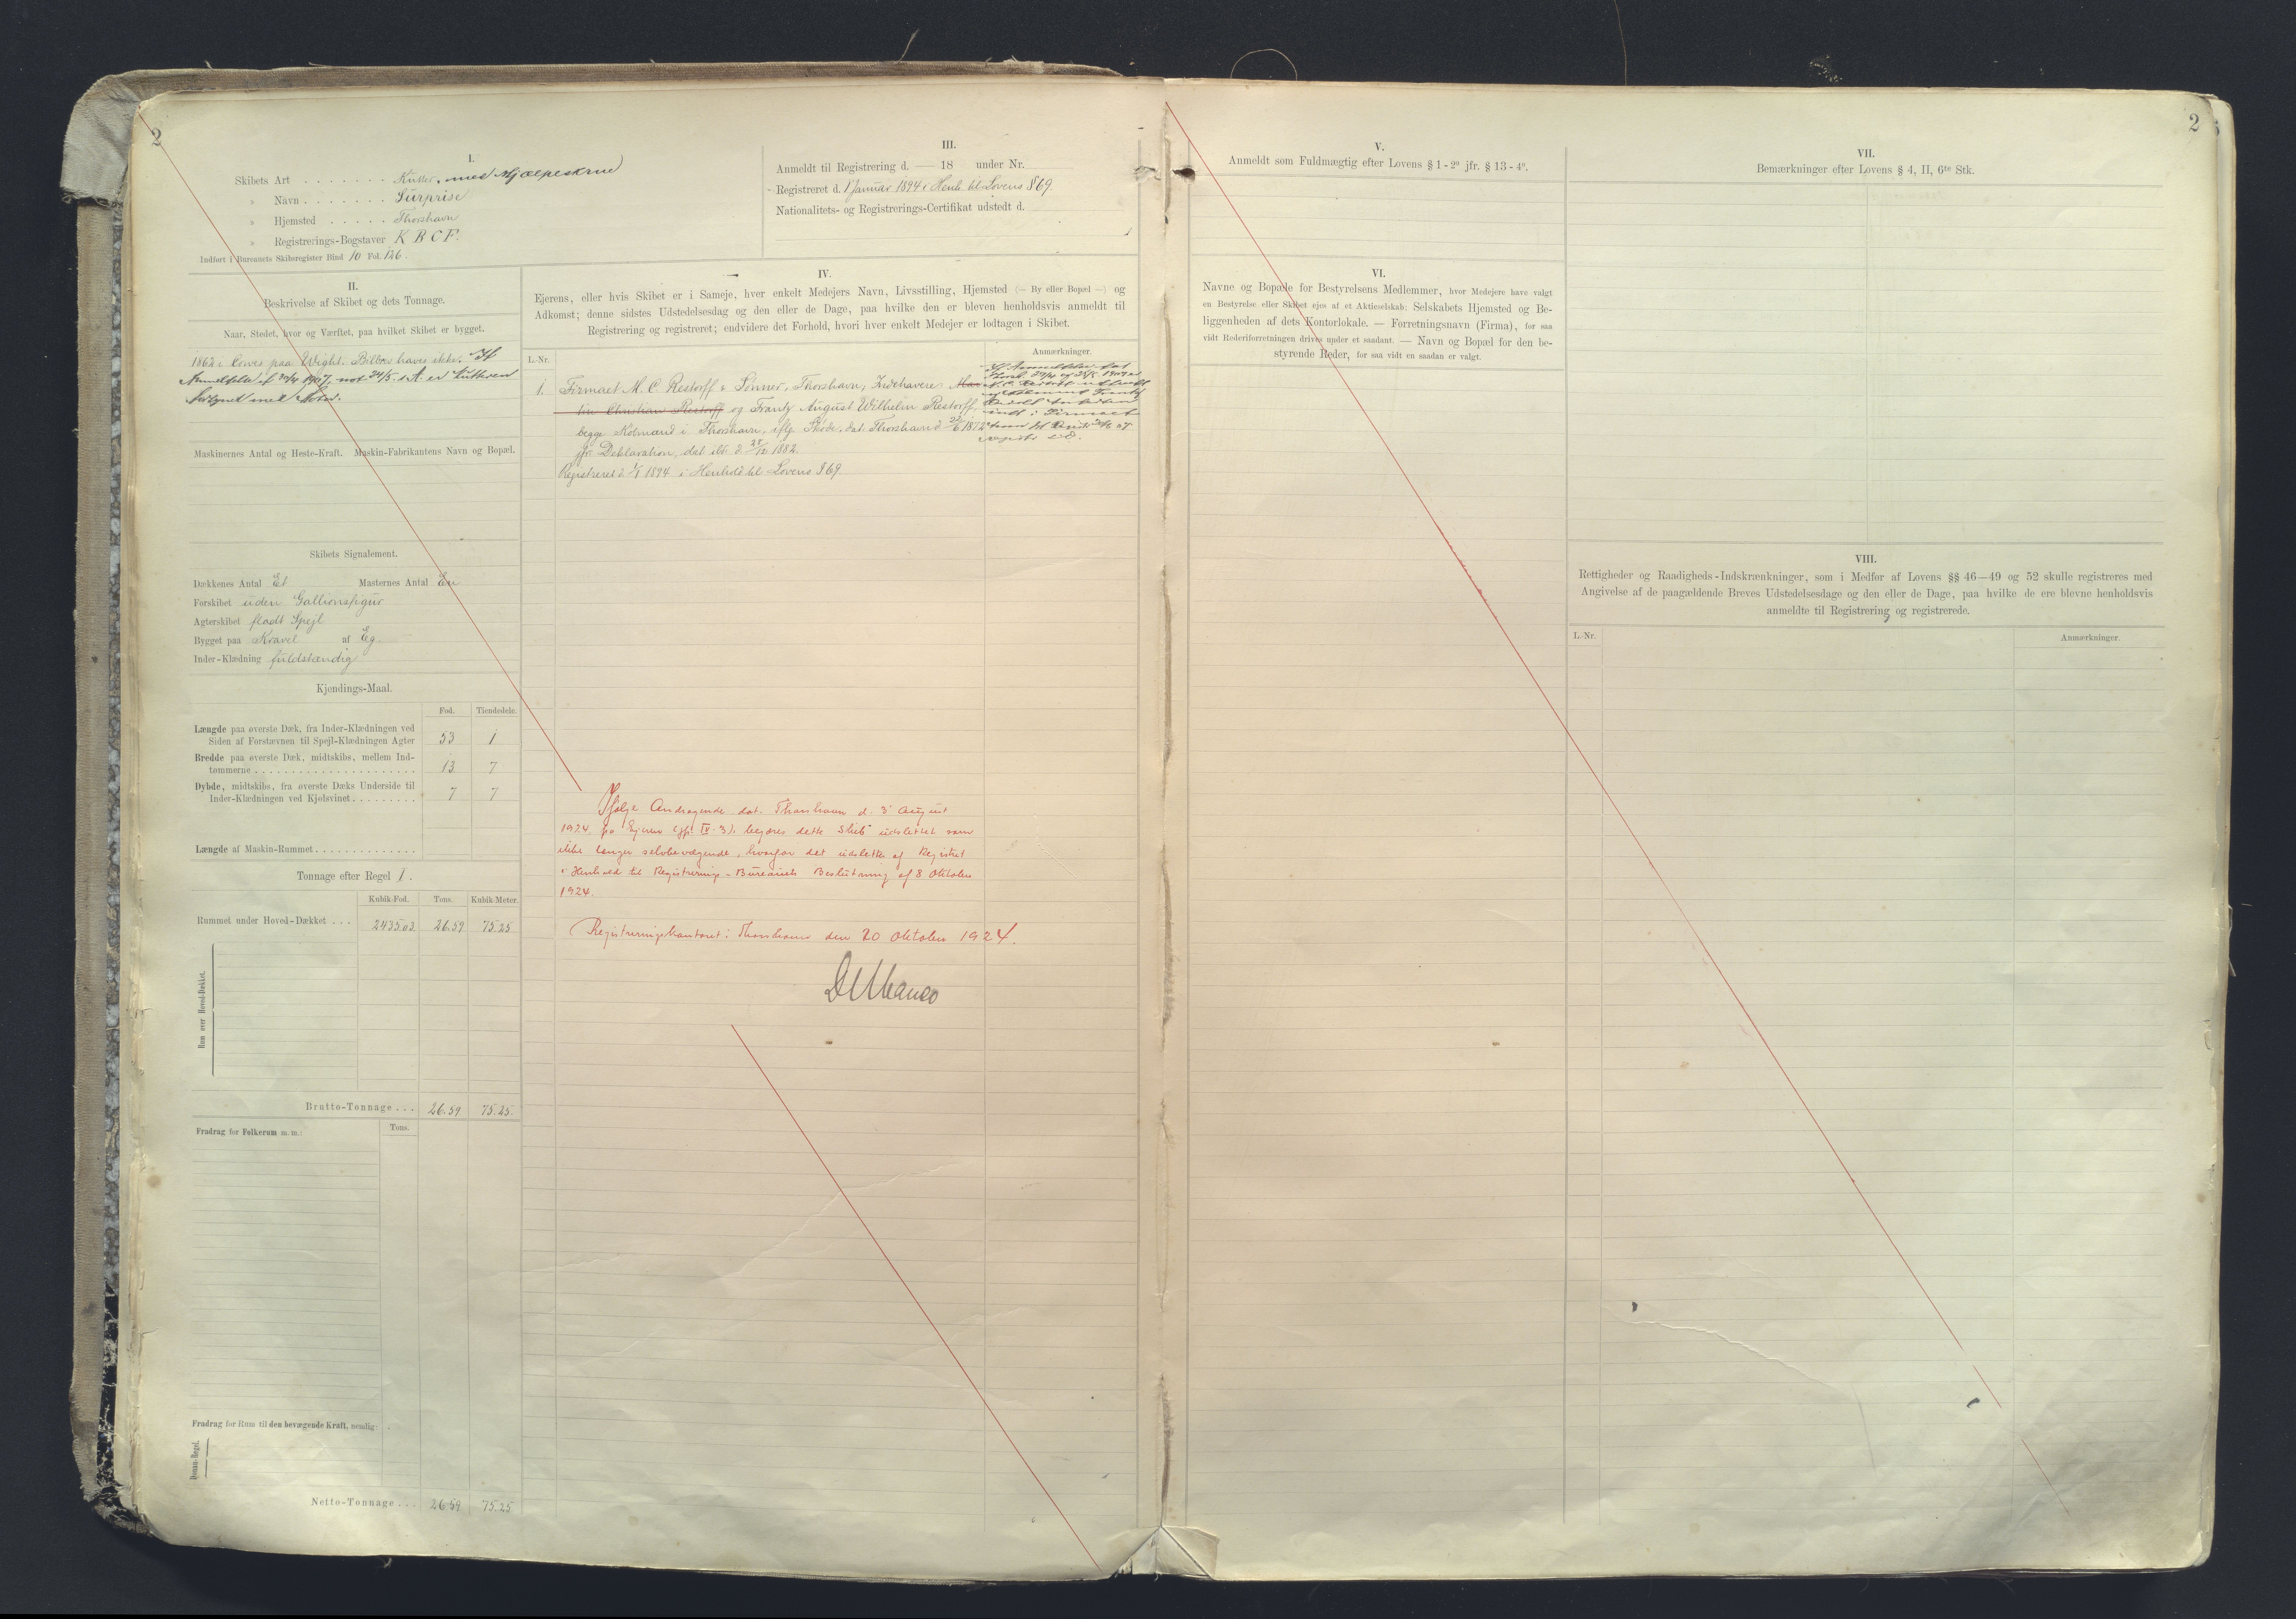 2
I.
Skibets Art . . . . . . . Kutter, med Hjælpeskrue
» Navn . . . . . . . Surprise
» Hjemsted . . . . . Thorshavn
» Registrerings-Bogstaver K B C F.
Indført i Bureauets Skibsregister Bind 10 Fol. 126.
III.
Anmeldt til Registrering d. — 18 under Nr.
Registreret d. 1 Januar 1894 i Henh. til Lovens § 69.
Nationalitets- og Registrerings-Certifikat udstedt d.
II.
Beskrivelse af Skibet og dets Tonnage.
Naar, Stedet, hvor og Værftet, paa hvilket Skibet er bygget.
1862 i Cowes paa Wight. Bilbrev haves ikke. If
Anmeldelse af 29/4 1907, not 24/5. s. A. er Kutteren
forsynet med Motor.
Maskinernes Antal og Heste-Kraft. Maskin-Fabrikantens Navn og Bopæl.
Skibets Signalement.
Dækkenes Antal Et Masternes Antal En
Forskibet uden Gallionsfigur
Agterskibet fladt Spejl
Bygget paa Kravel af Eg.
Inder-Klædning fuldstændig
Kjendings-Maal.
Fod. Tiendedele.
Længde paa øverste Dæk, fra Inder-Klædningen ved
Siden af Forstævnen til Spejl-Klædningen Agter 53 1
Bredde paa øverste Dæk, midtskibs, mellem Ind-
tømmerne . . . . . 13 7
Dybde, midtskibs, fra øverste Dæks Underside til
Inder-Klædningen ved Kjølsvinet . . . . . 7 7
Længde af Maskin-Rummet . . . . .
Tonnage efter Regel 1.
Kubik-Fod. Tons. Kubik-Meter.
Rummet under Hoved-Dækket . . . 2435.03 26.59 75.25
Rum over Hoved-Dækket.
Brutto-Tonnage . . . 26.59 75.25.
Fradrag for Folkerum m. m.: Tons.
Fradrag for Rum til den bevægende Kraft, nemlig:
Donau-Regel.
Netto-Tonnage . . . 26 59 75.25
IV.
Ejerens, eller hvis Skibet er i Sameje, hver enkelt Medejers Navn, Livsstilling, Hjemsted (— By eller Bopæl —) og
Adkomst; denne sidstes Udstedelsesdag og den eller de Dage, paa hvilke den er bleven henholdsvis anmeldt til
Registrering og registreret; endvidere det Forhold, hvori hver enkelt Medejer er lodtagen i Skibet.
L.-Nr. Anmærkninger.
1. Firmaet M. C. Restorff & Sønner, Thorshavn; Indehavere Mar-
tin Christian Restorff og Frantz August Wilhelm Restorff,
begge Købmænd i Thorshavn, iflg. Skøde, dat. Thorshavn d 22/6 1872
jfr. Deklaration, dat ibd. d 28/12 1882.
Registreret d. 1/1 1894 i Henhold til Lovens § 69.
If. Anmeldelse dat
Thorsh. 29/4 og 24/5 1907 er
M. C. Restorff udtraadt
Ifølge Andragende dat. Thorshavn d. 3' August
1924, fra Ejeren (jfr. IV. 3). begæres dette Skib udslettet som
ikke længer selvbevægende, hvorfor det udslettes af Registret
i Henhold til Registrerings-Bureauets Beslutning af 8 Oktober
1924.
Registreringskontoret i Thorshavn den 20 Oktober 1924.
2
V.
Anmeldt som Fuldmægtig efter Lovens § 1 - 2º jfr. § 13 - 4º.
VI.
Navne og Bopæle for Bestyrelsens Medlemmer, hvor Medejere have valgt
en Bestyrelse eller Skibet ejes af et Aktieselskab: Selskabets Hjemsted og Be-
liggenheden af dets Kontorlokale. — Forretningsnavn (Firma), for saa
vidt Rederiforretningen drives under et saadant. — Navn og Bopæl for den be-
styrende Reder, for saa vidt en saadan er valgt.
VII.
Bemærkninger efter Lovens § 4, II, 6te Stk.
VIII.
Rettigheder og Raadigheds-Indskrænkninger, som i Medfør af Lovens §§ 46—49 og 52 skulle registreres med
Angivelse af de paagældende Breves Udstedelsesdage og den eller de Dage, paa hvilke de ere blevne henholdsvis
anmeldte til Registrering og registrerede.
L.-Nr. Anmærkninger.